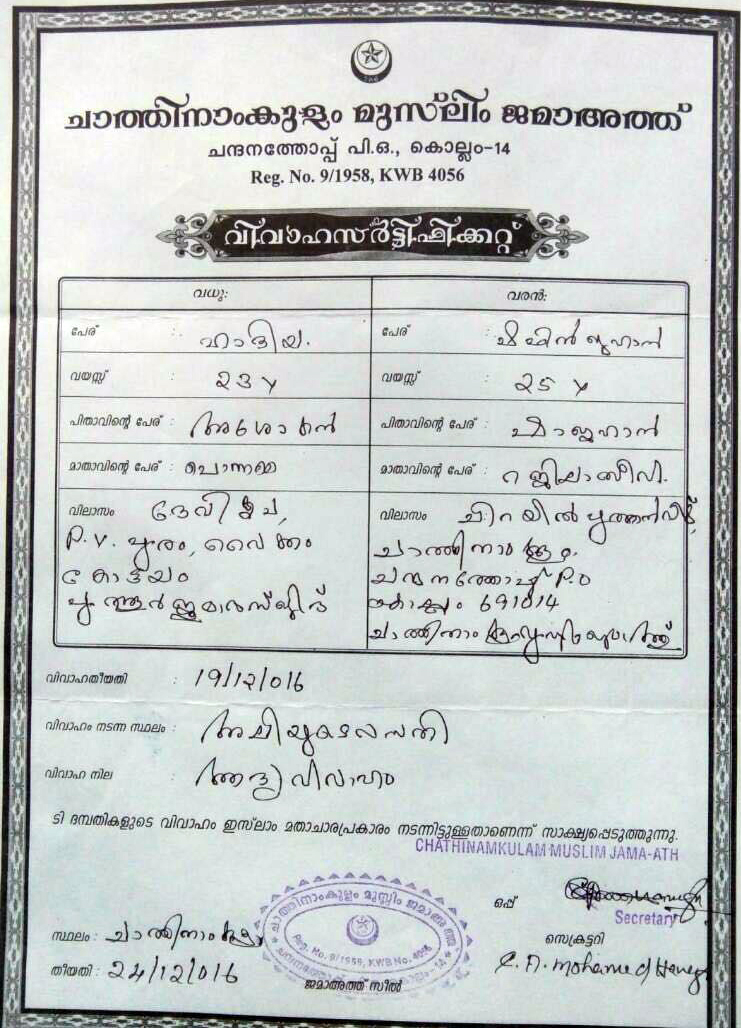 ചാത്തിനാംകുളം മുസ്‌ലിം ജമാഅത്ത്
ചന്ദനത്തോപ്പ് പി.ഒ., കൊല്ലം-14
Reg. No. 9/1958, KWB 4056
വിവാഹസർട്ടിഫിക്കറ്റ്
വധു:
പേര് : ഹാദിയ.
വയസ്സ് : 23 y
പിതാവിന്റെ പേര് : അശോകൻ
മാതാവിന്റെ പേര് : പൊന്നമ്മ
വിലാസം ദേവി കൃപ,
P.V. പുരം, വൈക്കം
കോട്ടയം
പുത്തൂർ ജുമാമസ്ജിദ്
വരൻ:
പേര് : ഷഫിൻ ജഹാൻ
വയസ്സ് : 25 y
പിതാവിന്റെ പേര് : ഷാജഹാൻ
മാതാവിന്റെ പേര് : റജിലാബീവി.
വിലാസം ചിറയിൽ പുത്തൻവീട്,
ചാത്തിനാംകുളം.
ചന്ദനത്തോപ്പ് P.O
കൊല്ലം 691014
ചാത്തിനാംകുളം
വിവാഹതീയതി : 19/12/016
വിവാഹം നടന്ന സ്ഥലം :
വിവാഹ നില : ആദ്യവിവാഹം
ടി ദമ്പതികളുടെ വിവാഹം ഇസ്‌ലാം മതാചാരപ്രകാരം നടന്നിട്ടുള്ളതാണെന്ന് സാക്ഷ്യപ്പെടുത്തുന്നു.
CHATHINAMKULAM MUSLIM JAMA-ATH
ഒപ്പ്
Secretary
സെക്രട്ടറി
സ്ഥലം : ചാത്തിനാംകുളം
തീയതി : 24/12/016
ചാത്തിനാംകുളം മുസ്ലിം ജമാഅത്ത്
Reg. No. 9/1958, KWB No. 4056
ജമാഅത്ത് സീൽ